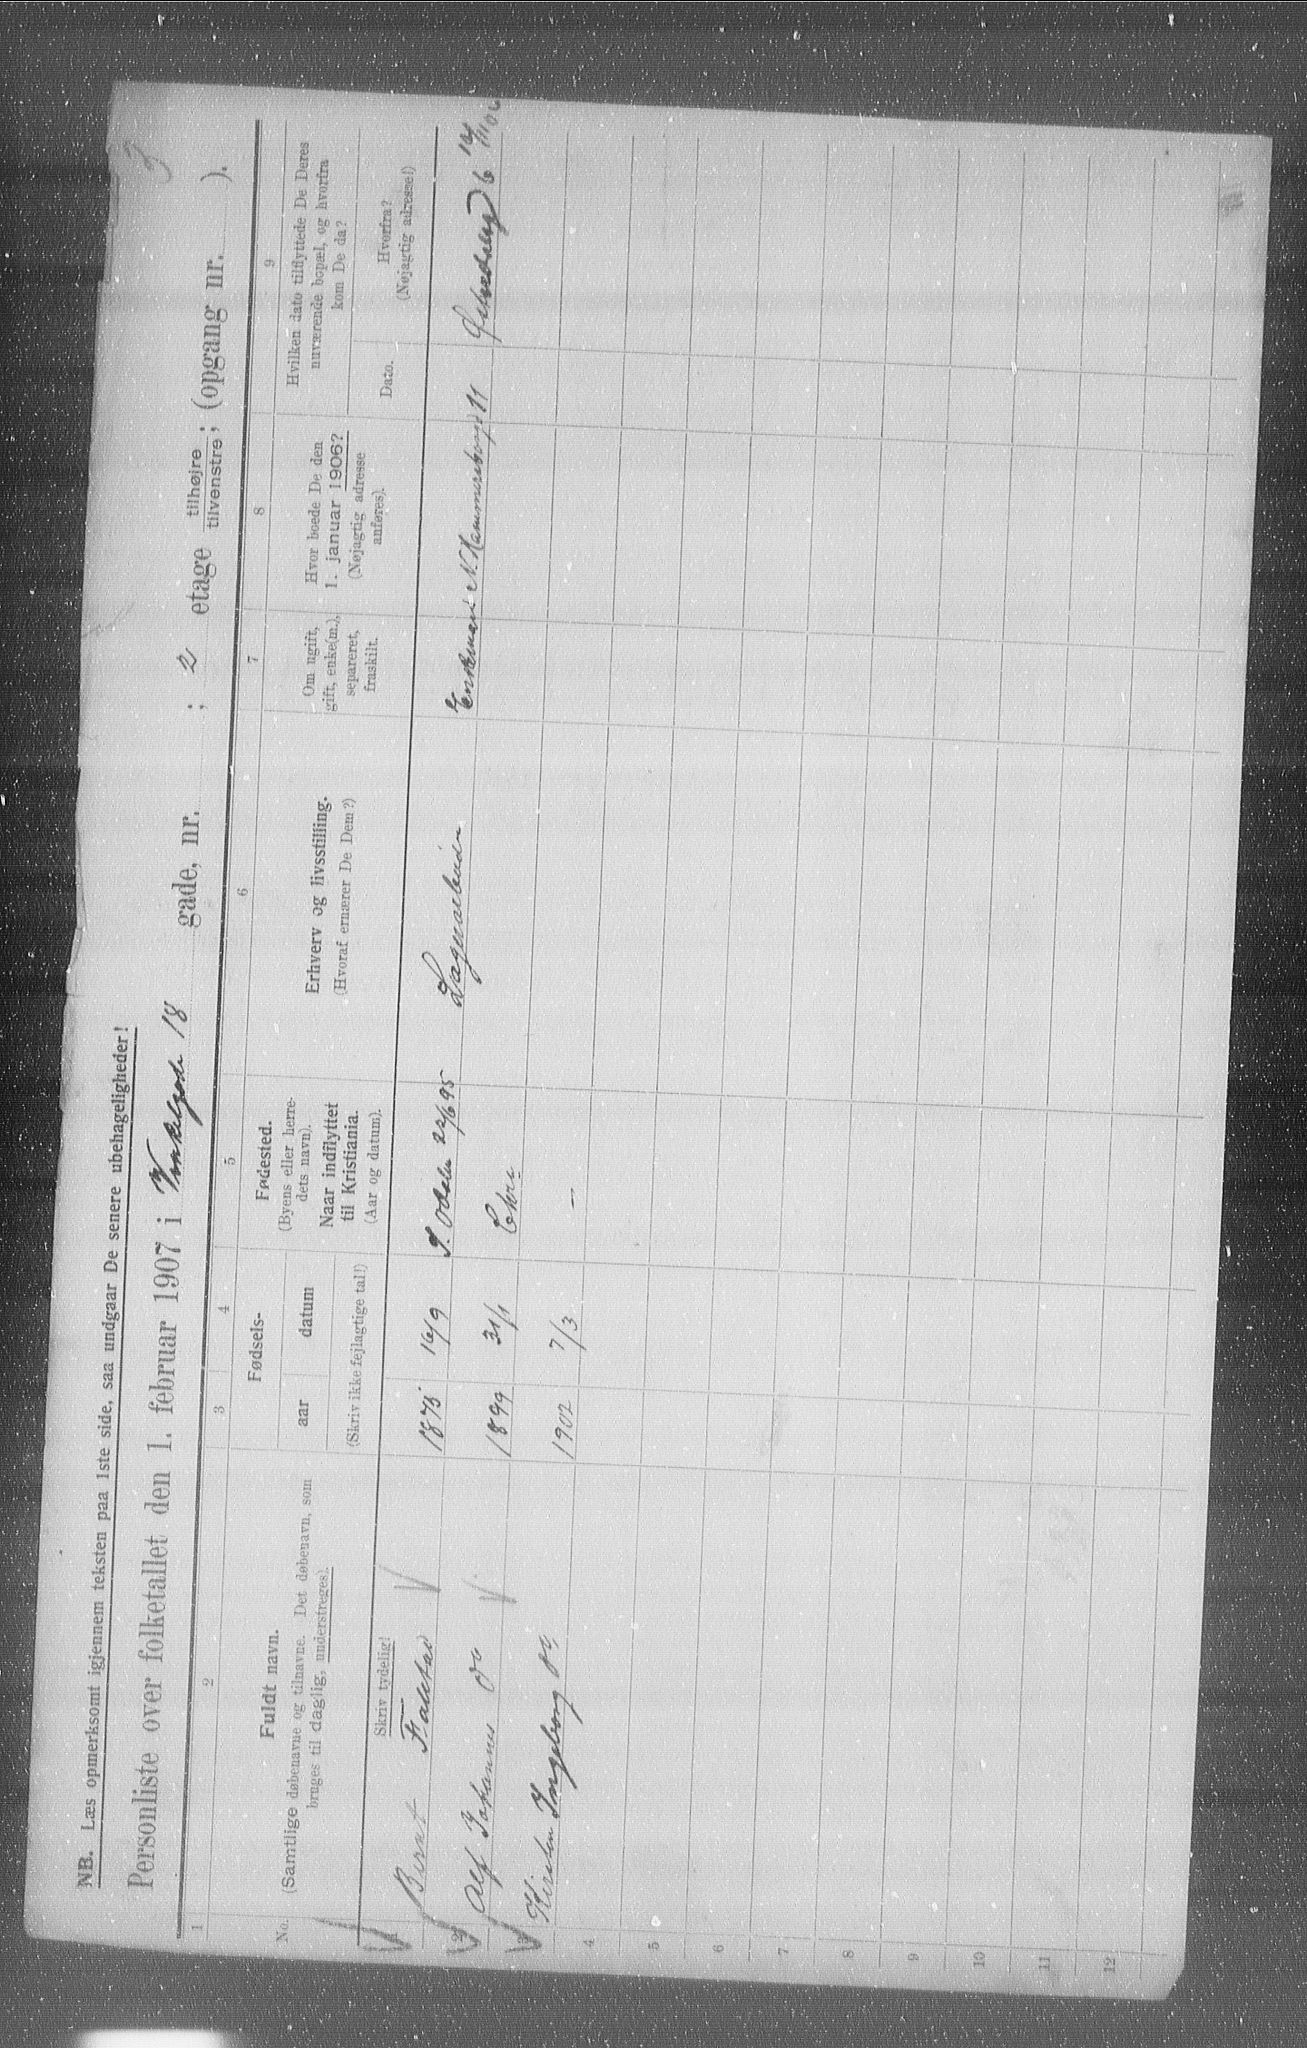 NB. Læs opmerksomt igjennem teksten paa 1ste side, saa undgaar De senere ubehageligheder!
Personliste over folketallet den 1. februar 1907 i Vinkelgade 18 gade, nr. ; 2 etage tilhøjre tilvenstre; (opgang nr. ).
1 2 3 4 5 6 7 8 9
No.
Fuldt navn.
(Samtlige døbenavne og tilnavne. Det døbenavn, som
bruges til daglig, understreges).
Skriv tydelig!
Fødsels-
aar datum
(Skriv ikke fejlagtige tal!)
Fødested.
(Byens eller herre-
dets navn).
Naar indflyttet
til Kristiania.
(Aar og datum).
Erhverv og livsstilling.
(Hvoraf ernærer De Dem?)
Om ugift,
gift, enke(m.),
separeret,
fraskilt.
Hvor boede De den
1. januar 1906?
(Nøjagtig adresse
anføres).
Hvilken dato tilflyttede De Deres
nuværende bopæl, og hvorfra
kom De da?
Dato.
Hvorfra?
(Nøjagtig adresse!)
1 Bernt Falstad 1875 16/9 S. Odalen 22/6 95 Lagerarbeider Enkemand N. Hammersborg 11
2 Alf Johannes do 1899 31/1 Chra
3 Kirsten Ingeborg do 1902 7/3 –
4
5
6
7
8
9
10
11
12